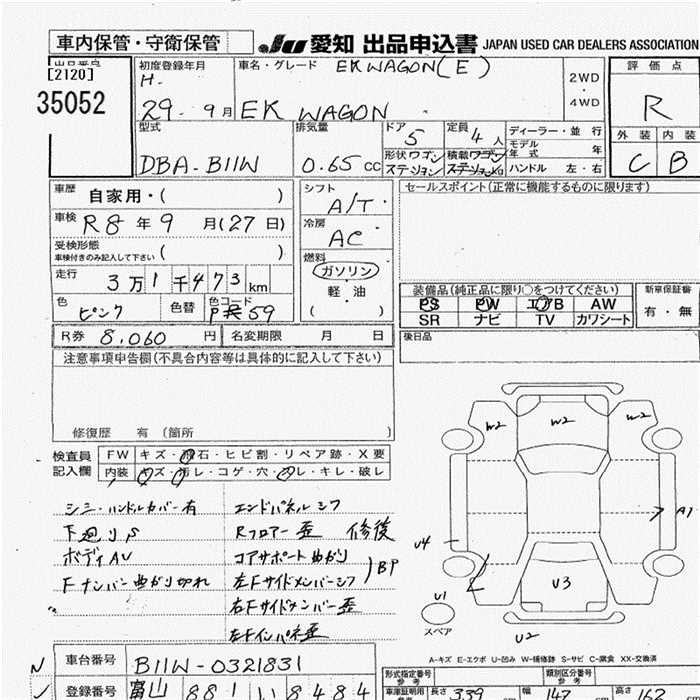 車内保管・守衛保管
JU 愛知 出品申込書 JAPAN USED CAR DEALERS ASSOCIATION
出品番号
[2120]
35052
初度登録年月
H-
29-9月
車名・グレード EKWAGON(E)
EK WAGON
2WD
・
4WD
評価点
R
外装 内装
C B
型式
DBA-B11W
排気量
0.65 CC
ドア 5
形状 ワゴン
ステーション
定員 4人
積載 ワゴン
ステーション kg
ディーラー・並行
モデル年式 年
ハンドル 左・右
車歴 自家用・( )
車検 R8年9月(27日)
受検形態
車検付きのみ記入して下さい ( )
走行 3万1千473km
色 ピンク
色替
色コード P59
シフト A/T
冷房 AC
燃料
ガソリン
軽・油
( )
セールスポイント(正常に機能するものに限ります)
装備品(純正品に限り○をつけてください)
PS PW エアB AW
SR ナビ TV カワシート
新車保証書
有・無
R券 8,060円
名変期限 月 日
後日品
注意事項申告欄(不具合内容等は具体的に記入して下さい)
修復歴 有 (箇所 )
検査員記入欄
FW キズ・飛石・ヒビ割・リペア跡・X要
内装 キズ・汚レ・コゲ・穴・スレ・キレ・破レ
シミ・ハンドルカバー有
下廻りS
ボディAU
Fナンバー曲がり切れ
エンドパネルシワ
Rフロアー歪 修復
コアサポート曲がり
左Fサイドメンバーシワ
BP
右Fサイドメンバー歪
左Fインパネ歪
W2 W2 W2
A1
U4
U3
U1
スペア
U2
A-キズ E-エクボ U-凹み W-補修跡 S-サビ C-腐食 XX-交換済
車台番号 B11W-0321831
登録番号 富山 881 い 8484
形式指定番号
参考
類別区分番号
参考
車庫証明用
参考
長さ 339
幅 147
高さ 162